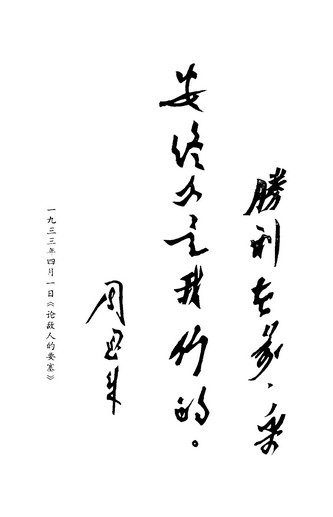 勝利在，樂
安終久是我们的。
周恩来
一九三三年四月一日《论敌人的要塞》